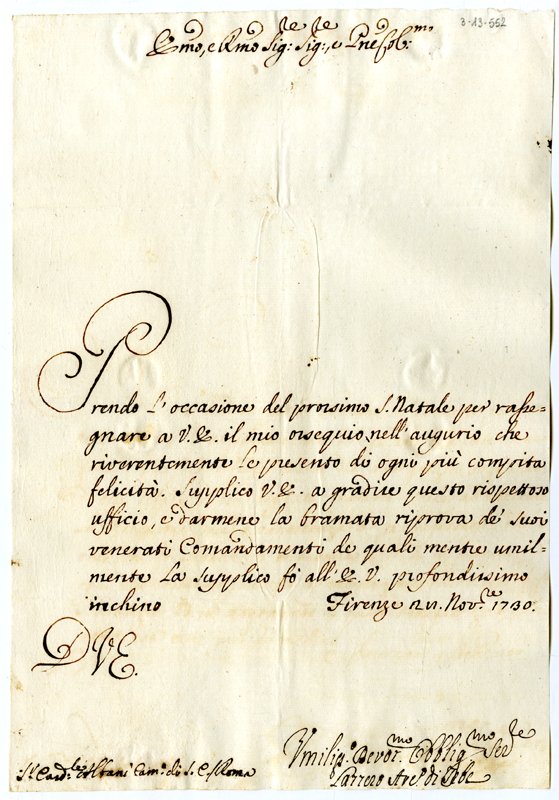 3-13-552
Emo, e Rmo Sig:re Sig:re, e Pne Col:mo
Prendo l'occasione del prossimo S. Natale per rasse=
gnare a V. E. il mio ossequio, nell'augurio che
riverentemente le presento di ogni più compita
felicità. Supplico V. E. a gradire questo rispettoso
ufficio, e darmene la bramata riprova de' suoi
venerati Comandamenti de quali mentre umil=
mente la supplico fò all'E. V. profondissimo
inchino Firenze Nov.re 1730.
D V E.
Umiliss.o Devot.mo Obblig.mo Ser.re
Arc. di
Sr Card.le Albani Cam.o di S. C. Roma